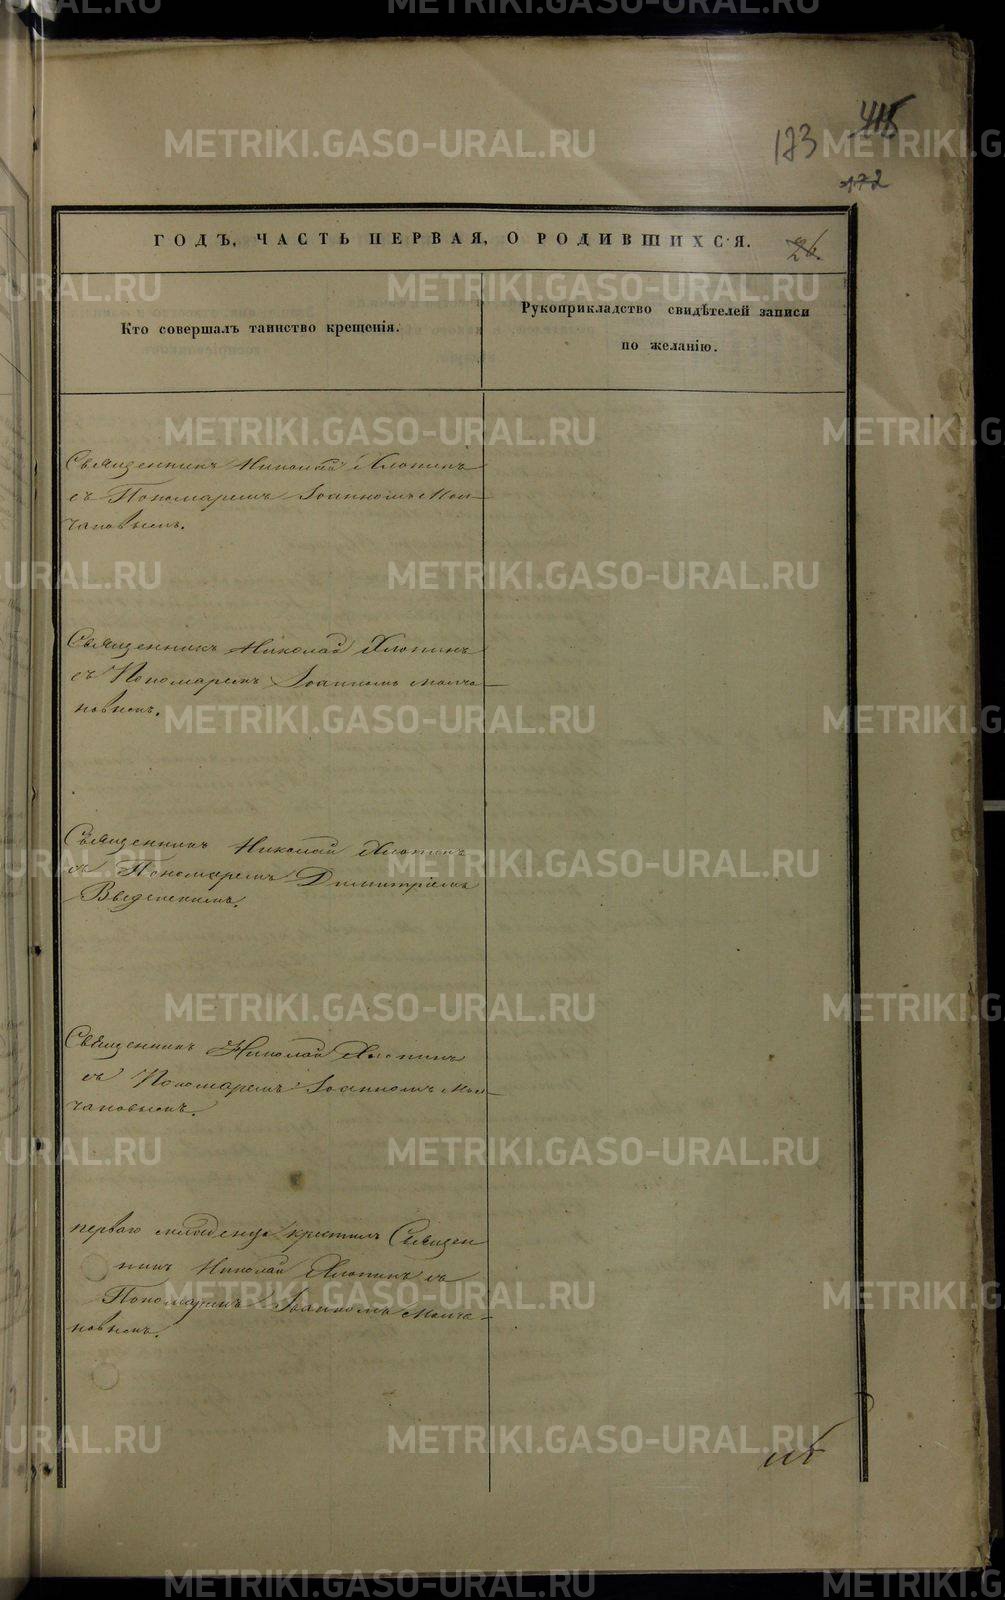 415
173
172
ГОДЪ, ЧАСТЬ ПЕРВАЯ, О РОДИВШИХСЯ.
26.
Кто совершалъ таинство крещенія.
Рукоприкладство свидѣтелей записи
по желанію.
Священникъ Николай Хлопинъ
съ Пономаремъ Іоанномъ Мол-
чановымъ.
Священникъ Николай Хлопинъ
съ Пономаремъ Іоанномъ Молча-
новымъ.
Священникъ Николай Хлопинъ
съ Пономаремъ Димитріемъ
Введенскимъ.
Священникъ Николай Хлопинъ
съ Пономаремъ Іоанномъ Мол-
чановымъ.
перваго младенца крестилъ Священ
никъ Николай Хлопинъ съ
Пономаремъ Іоанномъ Молча-
новымъ.
METRIKI.GASO-URAL.RU